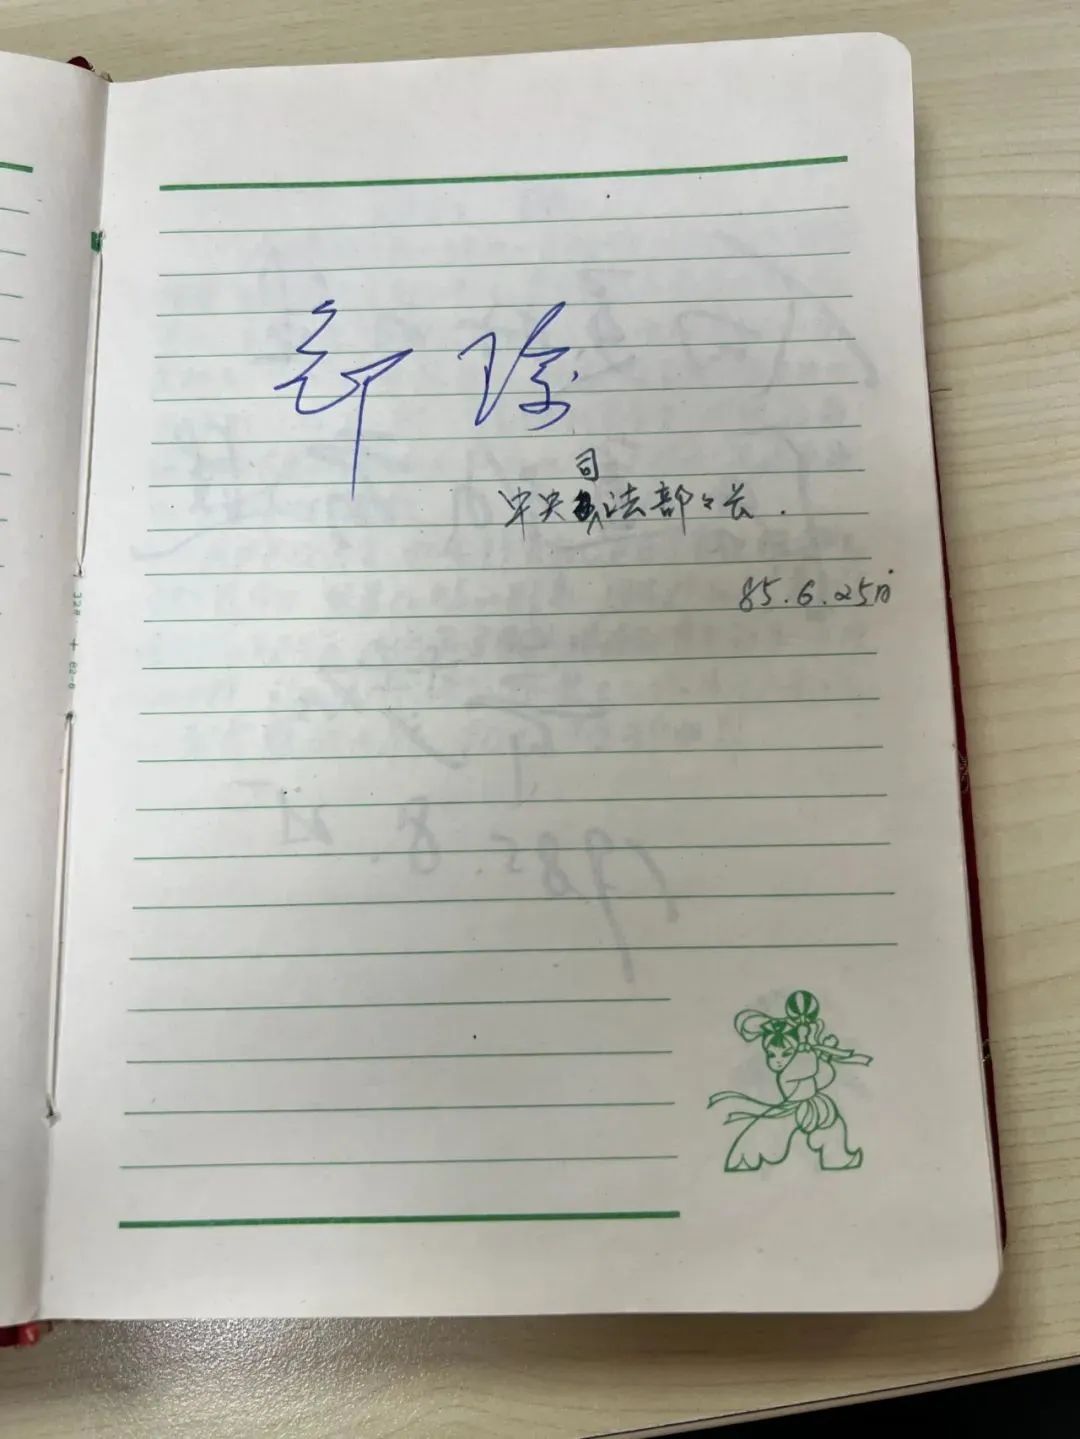 邹瑜
中央司法部々长.
85.6.25日